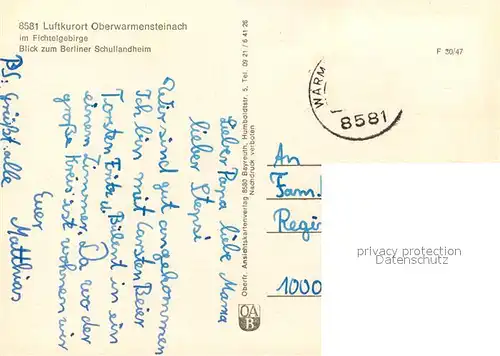 8581 Luftkurort Oberwarmensteinach
im Fichtelgebirge
Blick zum Berliner Schullandheim
F 30/47
Lieber Papa liebe Mama
lieber Stepsi
Wir sind gut angekommen
Ich bin mit Carsten Beier
Torsten Fritz u. Bülent in ein
einem Zimmer. Da wo der
große Kreis ist wohnen wir
Euer
Matthias
PS: Grüßt alle
Oberfr. Ansichtskartenverlag 8580 Bayreuth, Humboldtstr. 5, Tel. 09 21 / 6 41 26
Nachdruck verboten
OA
B
WARM
8581
An
Fam.
Regi
1000
privacy protection
Datenschutz